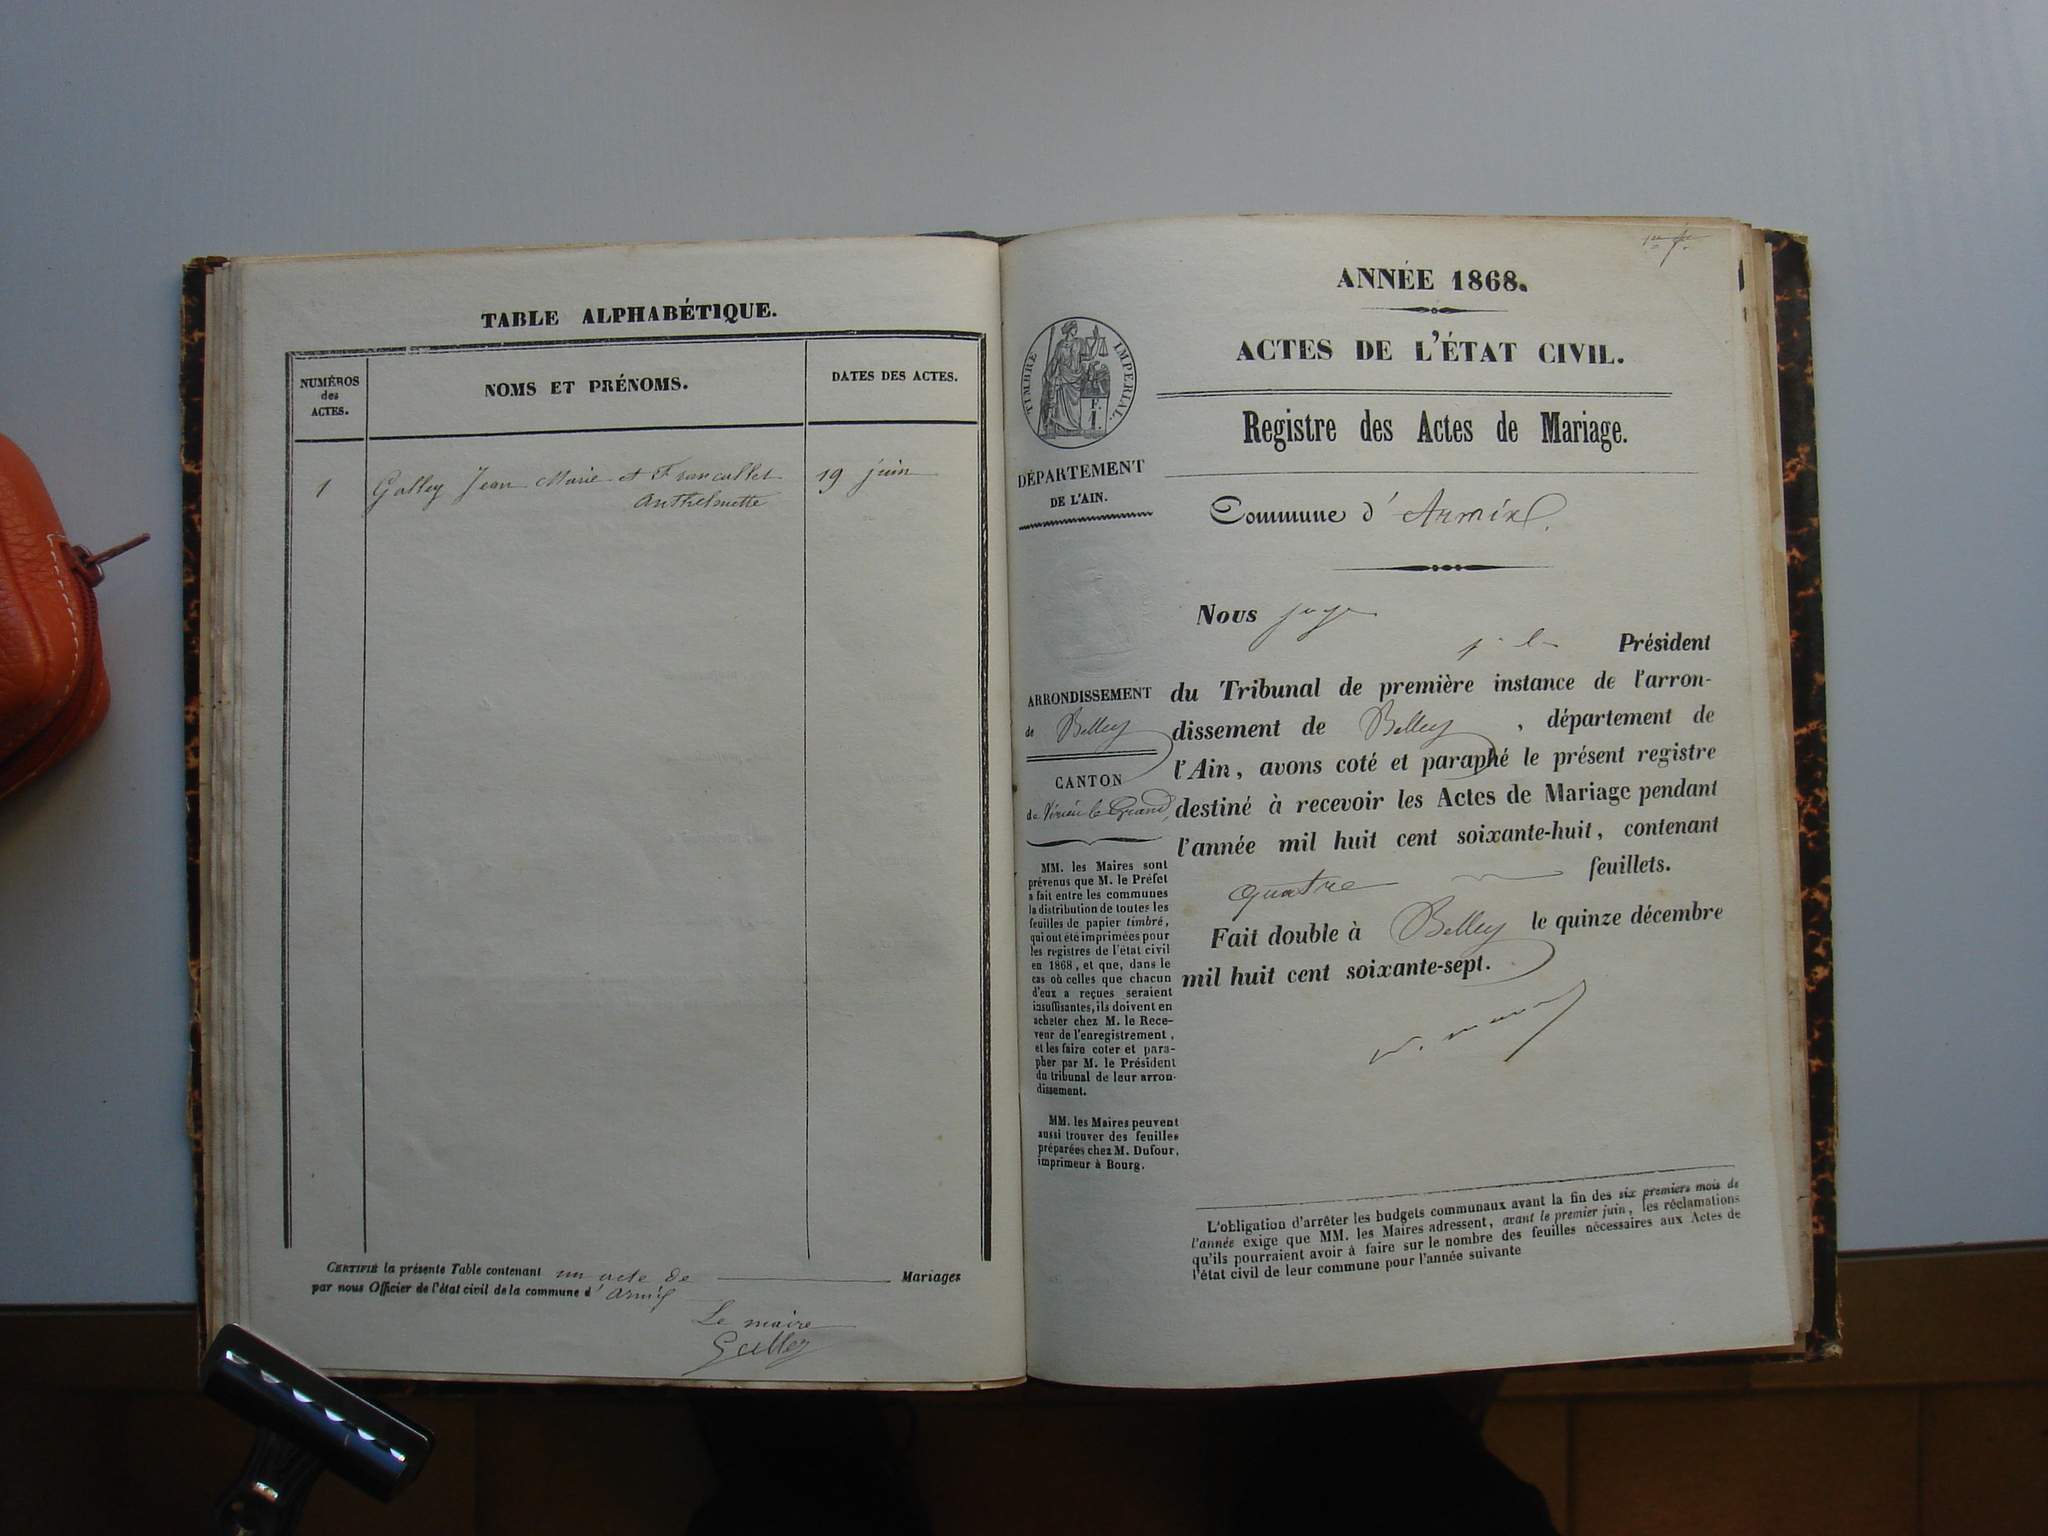 TABLE ALPHABÉTIQUE.
NUMÉROS
des
ACTES.
NOMS ET PRÉNOMS.
DATES DES ACTES.
1 Galley Jean Marie et Francallet 19 juin
Anthelmette
CERTIFIÉ la présente Table contenant un acte de Mariages
par nous Officier de l'état civil de la commune d' Armix
Le maire
Galley
ANNÉE 1868.
ACTES DE L'ÉTAT CIVIL.
Registre des Actes de Mariage.
Commune d' Armix.
TIMBRE IMPERIAL.
F.
1.
DÉPARTEMENT
DE L'AIN.
ARRONDISSEMENT
de Belley
CANTON
de Virieu le Grand,
MM. les Maires sont
prévenus que M. le Préfet
a fait entre les communes
la distribution de toutes les
feuilles de papier timbré,
qui ont été imprimées pour
les registres de l'état civil
en 1868, et que, dans le
cas où celles que chacun
d'eux a reçues seraient
insuffisantes, ils doivent en
acheter chez M. le Rece-
veur de l'enregistrement,
et les faire coter et para-
pher par M. le Président
du tribunal de leur arron-
dissement.
MM. les Maires peuvent
aussi trouver des feuilles
préparées chez M. Dufour,
imprimeur à Bourg.
Nous juge
p. le Président
du Tribunal de première instance de l'arron-
dissement de Belley, département de
l'Ain, avons coté et paraphé le présent registre
destiné à recevoir les Actes de Mariage pendant
l'année mil huit cent soixante-huit, contenant
quatre feuillets.
Fait double à Belley le quinze décembre
mil huit cent soixante-sept.
L'obligation d'arrêter les budgets communaux avant la fin des six premiers mois de
l'année exige que MM. les Maires adressent, avant le premier juin, les réclamations
qu'ils pourraient avoir à faire sur le nombre des feuilles nécessaires aux Actes de
l'état civil de leur commune pour l'année suivante